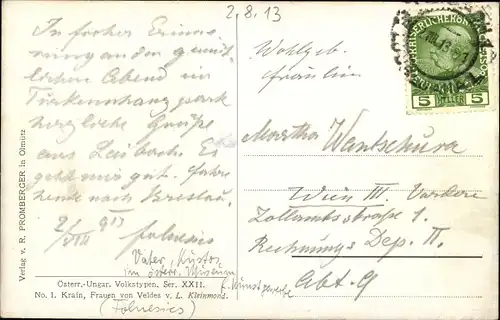 2.8.13
In froher Erinne-
rung an den gemüt-
lichen Abend im
Türkenschanzpark
herzliche Grüße
aus Laibach. Es
geht mir gut. Fahre
heute nach Breslau.
2/VIII 913
Folnesics
Vater, Kustos
am österr. Museum
f. Kunstgewerbe
(Folnesics)
Wohlgeb.
Fräulein
Martha Wantschura
Wien III. Vordere
Zollamtsstraße 1.
Rechnungs Dep. II.
Abt. 9
5 HELLER 5
Verlag v. R. PROMBERGER in Olmütz
Österr.-Ungar. Volkstypen. Ser. XXII.
No. 1. Krain, Frauen von Veldes v. L. Kleinmond.